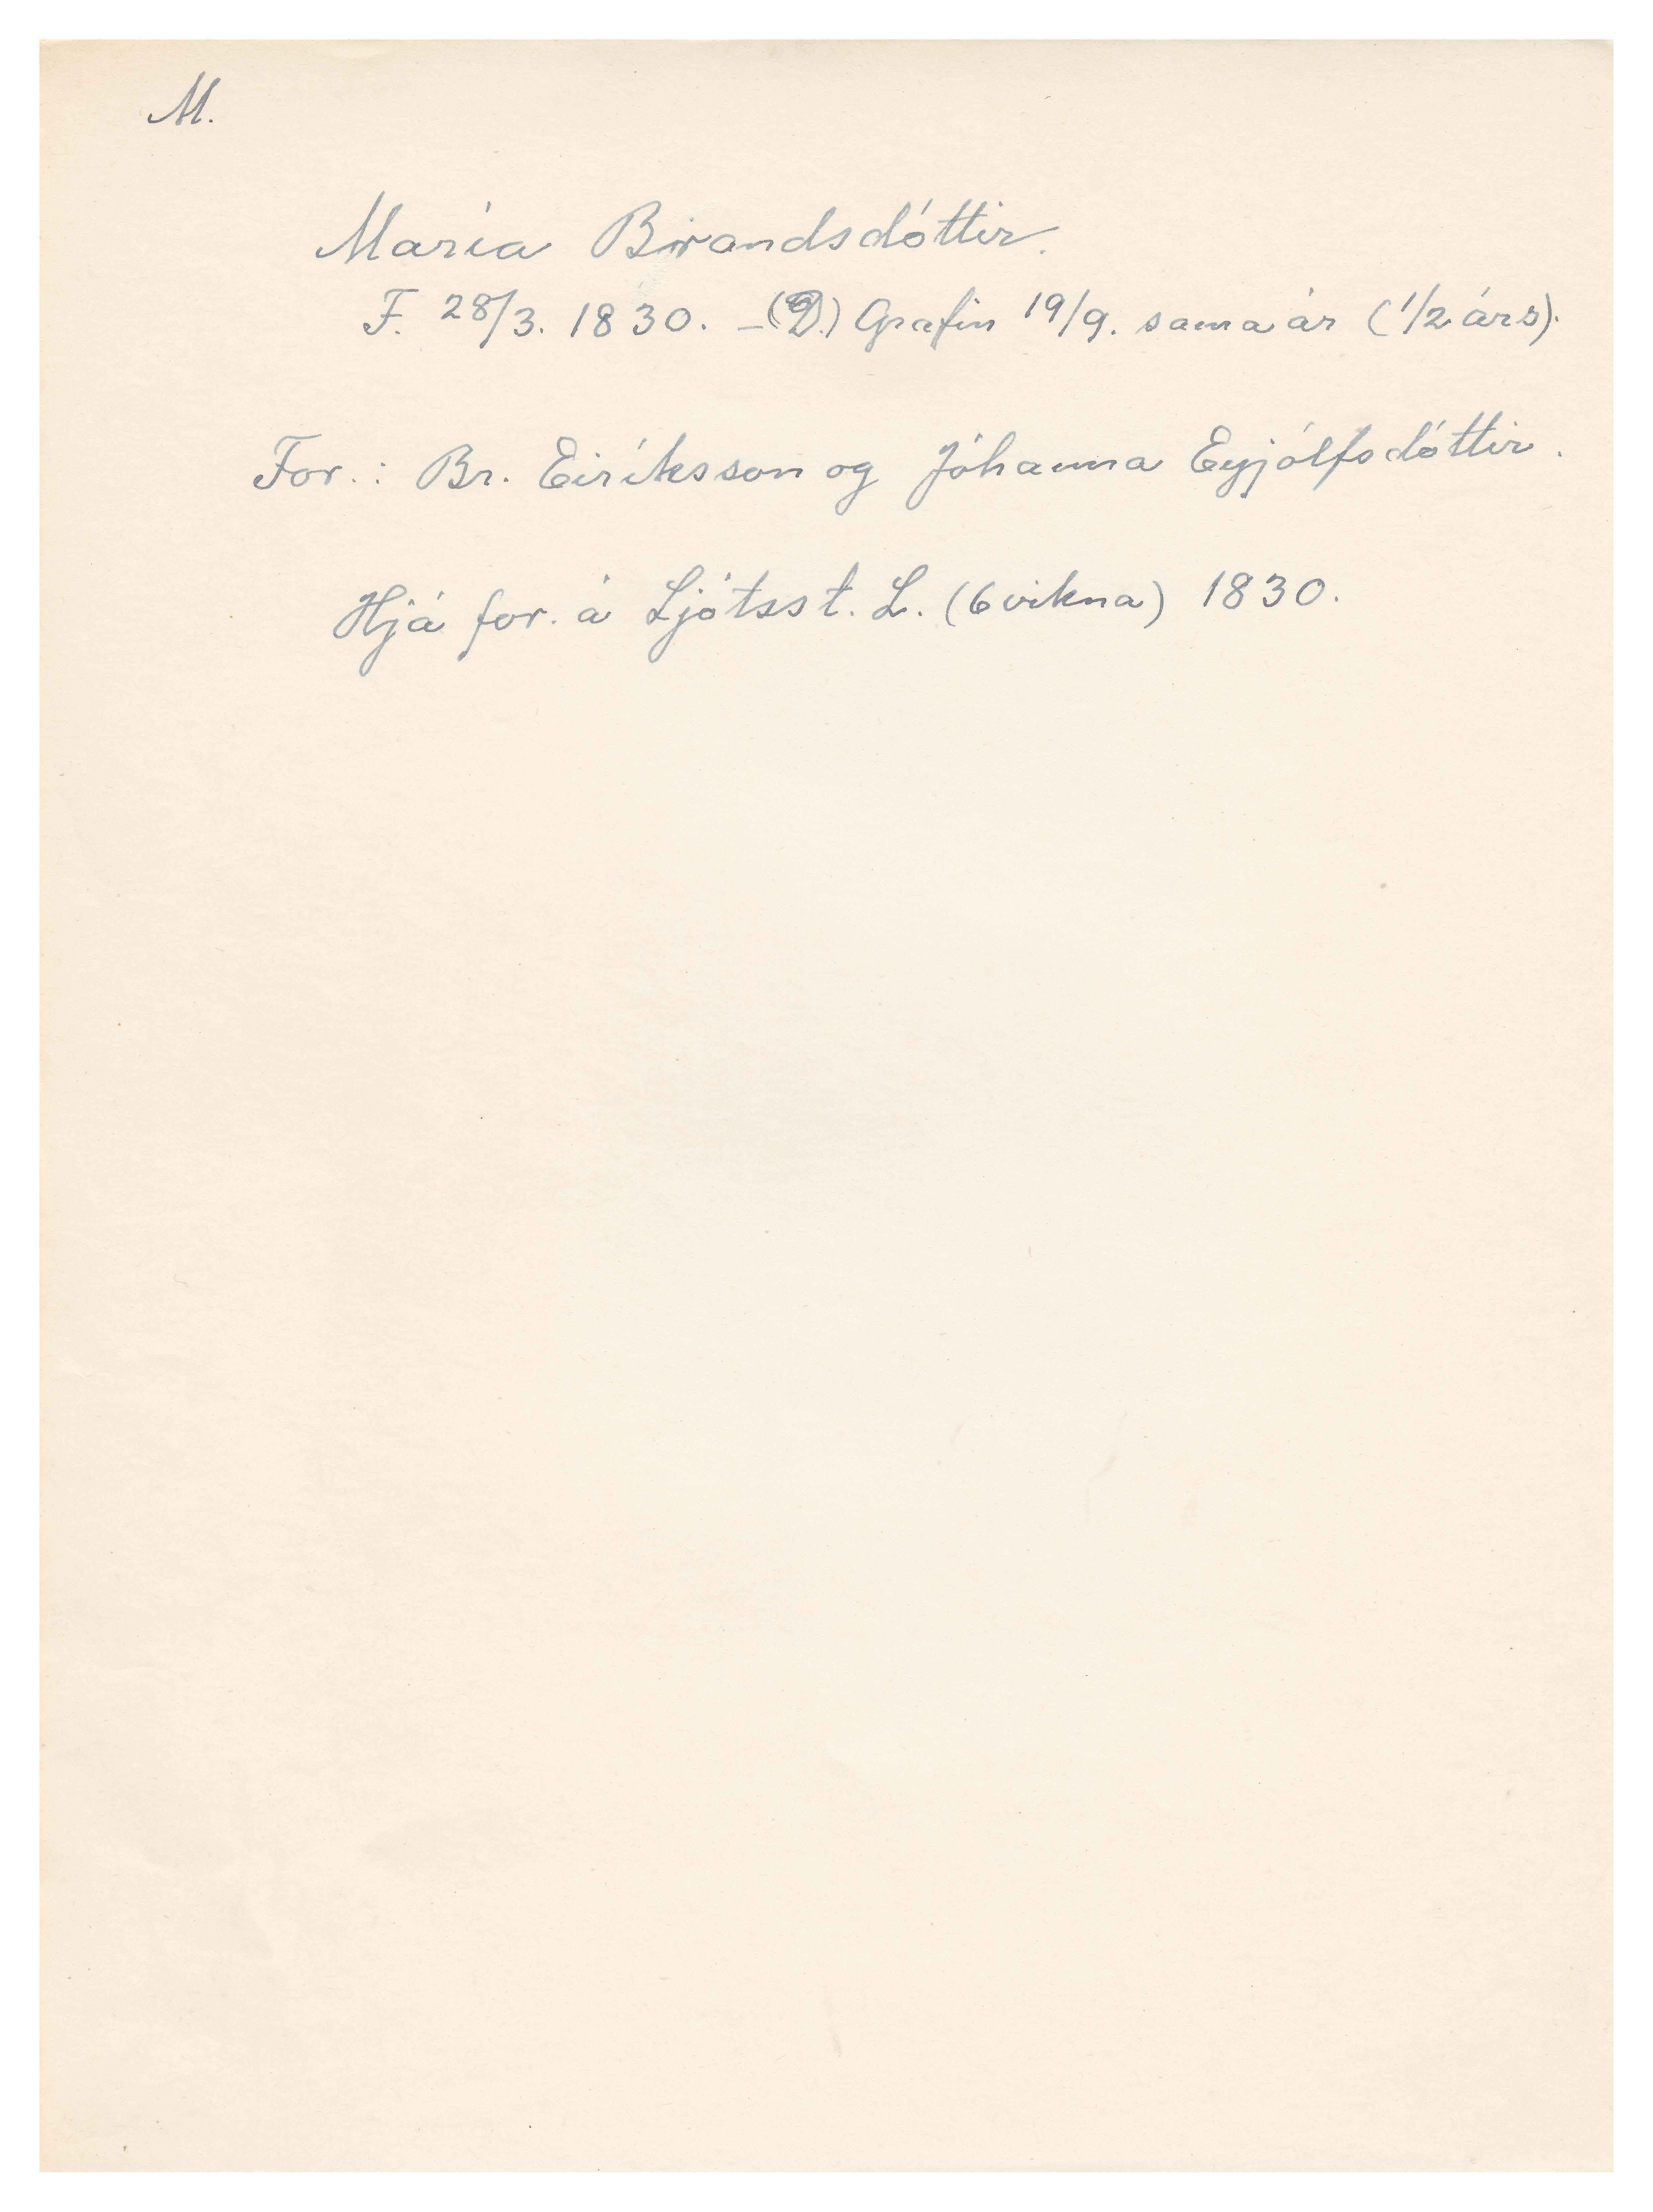 M.
María Brandsdóttir.
F. 28/3. 1830. - (D.) Grafin 19/9. sama ár (1/2 árs).
For.: Br. Eiríksson og Jóhanna Eyjólfsdóttir.
Hjá for. á Ljótsst. L. (6 vikna) 1830.